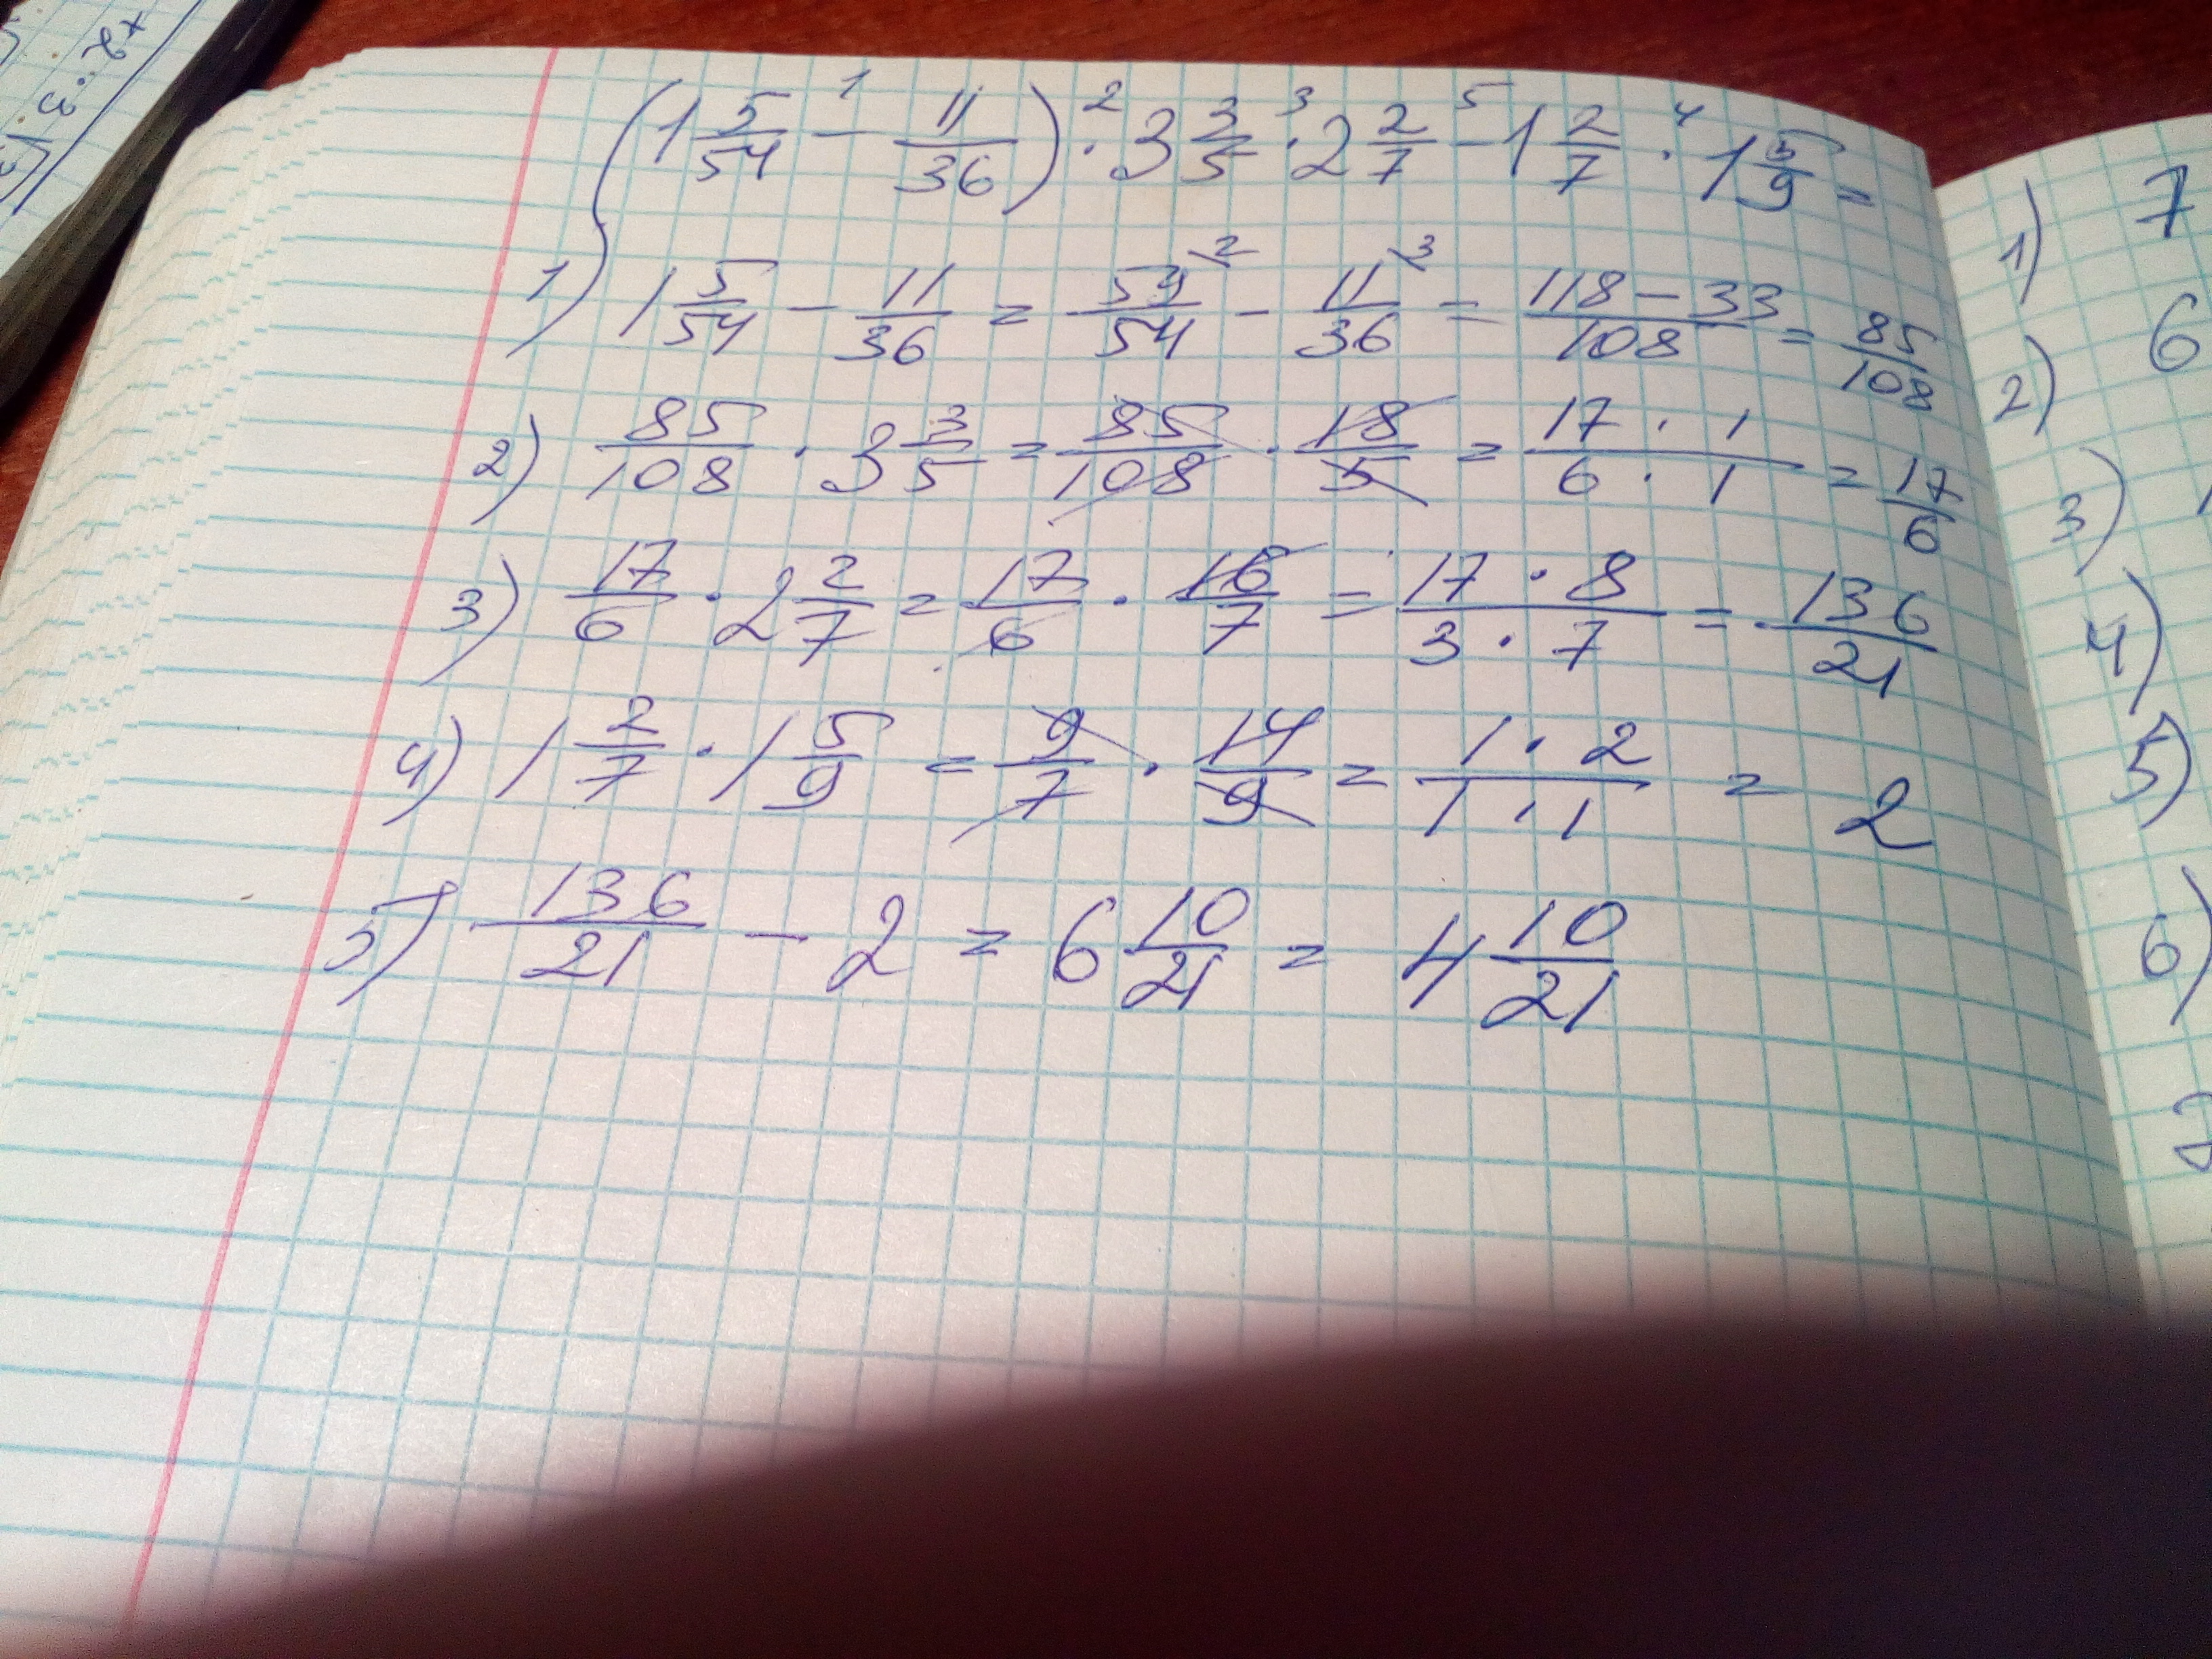 (1 5/54 - 11/36) · 3 3/5 · 2 2/7 - 1 2/7 · 1 5/9 =
1) 1 5/54 - 11/36 = 59/54 - 11/36 = 118-33/108 = 85/108
2) 85/108 · 3 3/5 = 85/108 · 18/5 = 17 · 1/6 · 1 = 17/6
3) 17/6 · 2 2/7 = 17/6 · 16/7 = 17 · 8/3 · 7 = 136/21
4) 1 2/7 · 1 5/9 = 9/7 · 14/9 = 1 · 2/1 · 1 = 2
5) 136/21 - 2 = 6 10/21 = 4 10/21
1) 7
6
2)
3)
4)
5)
6)